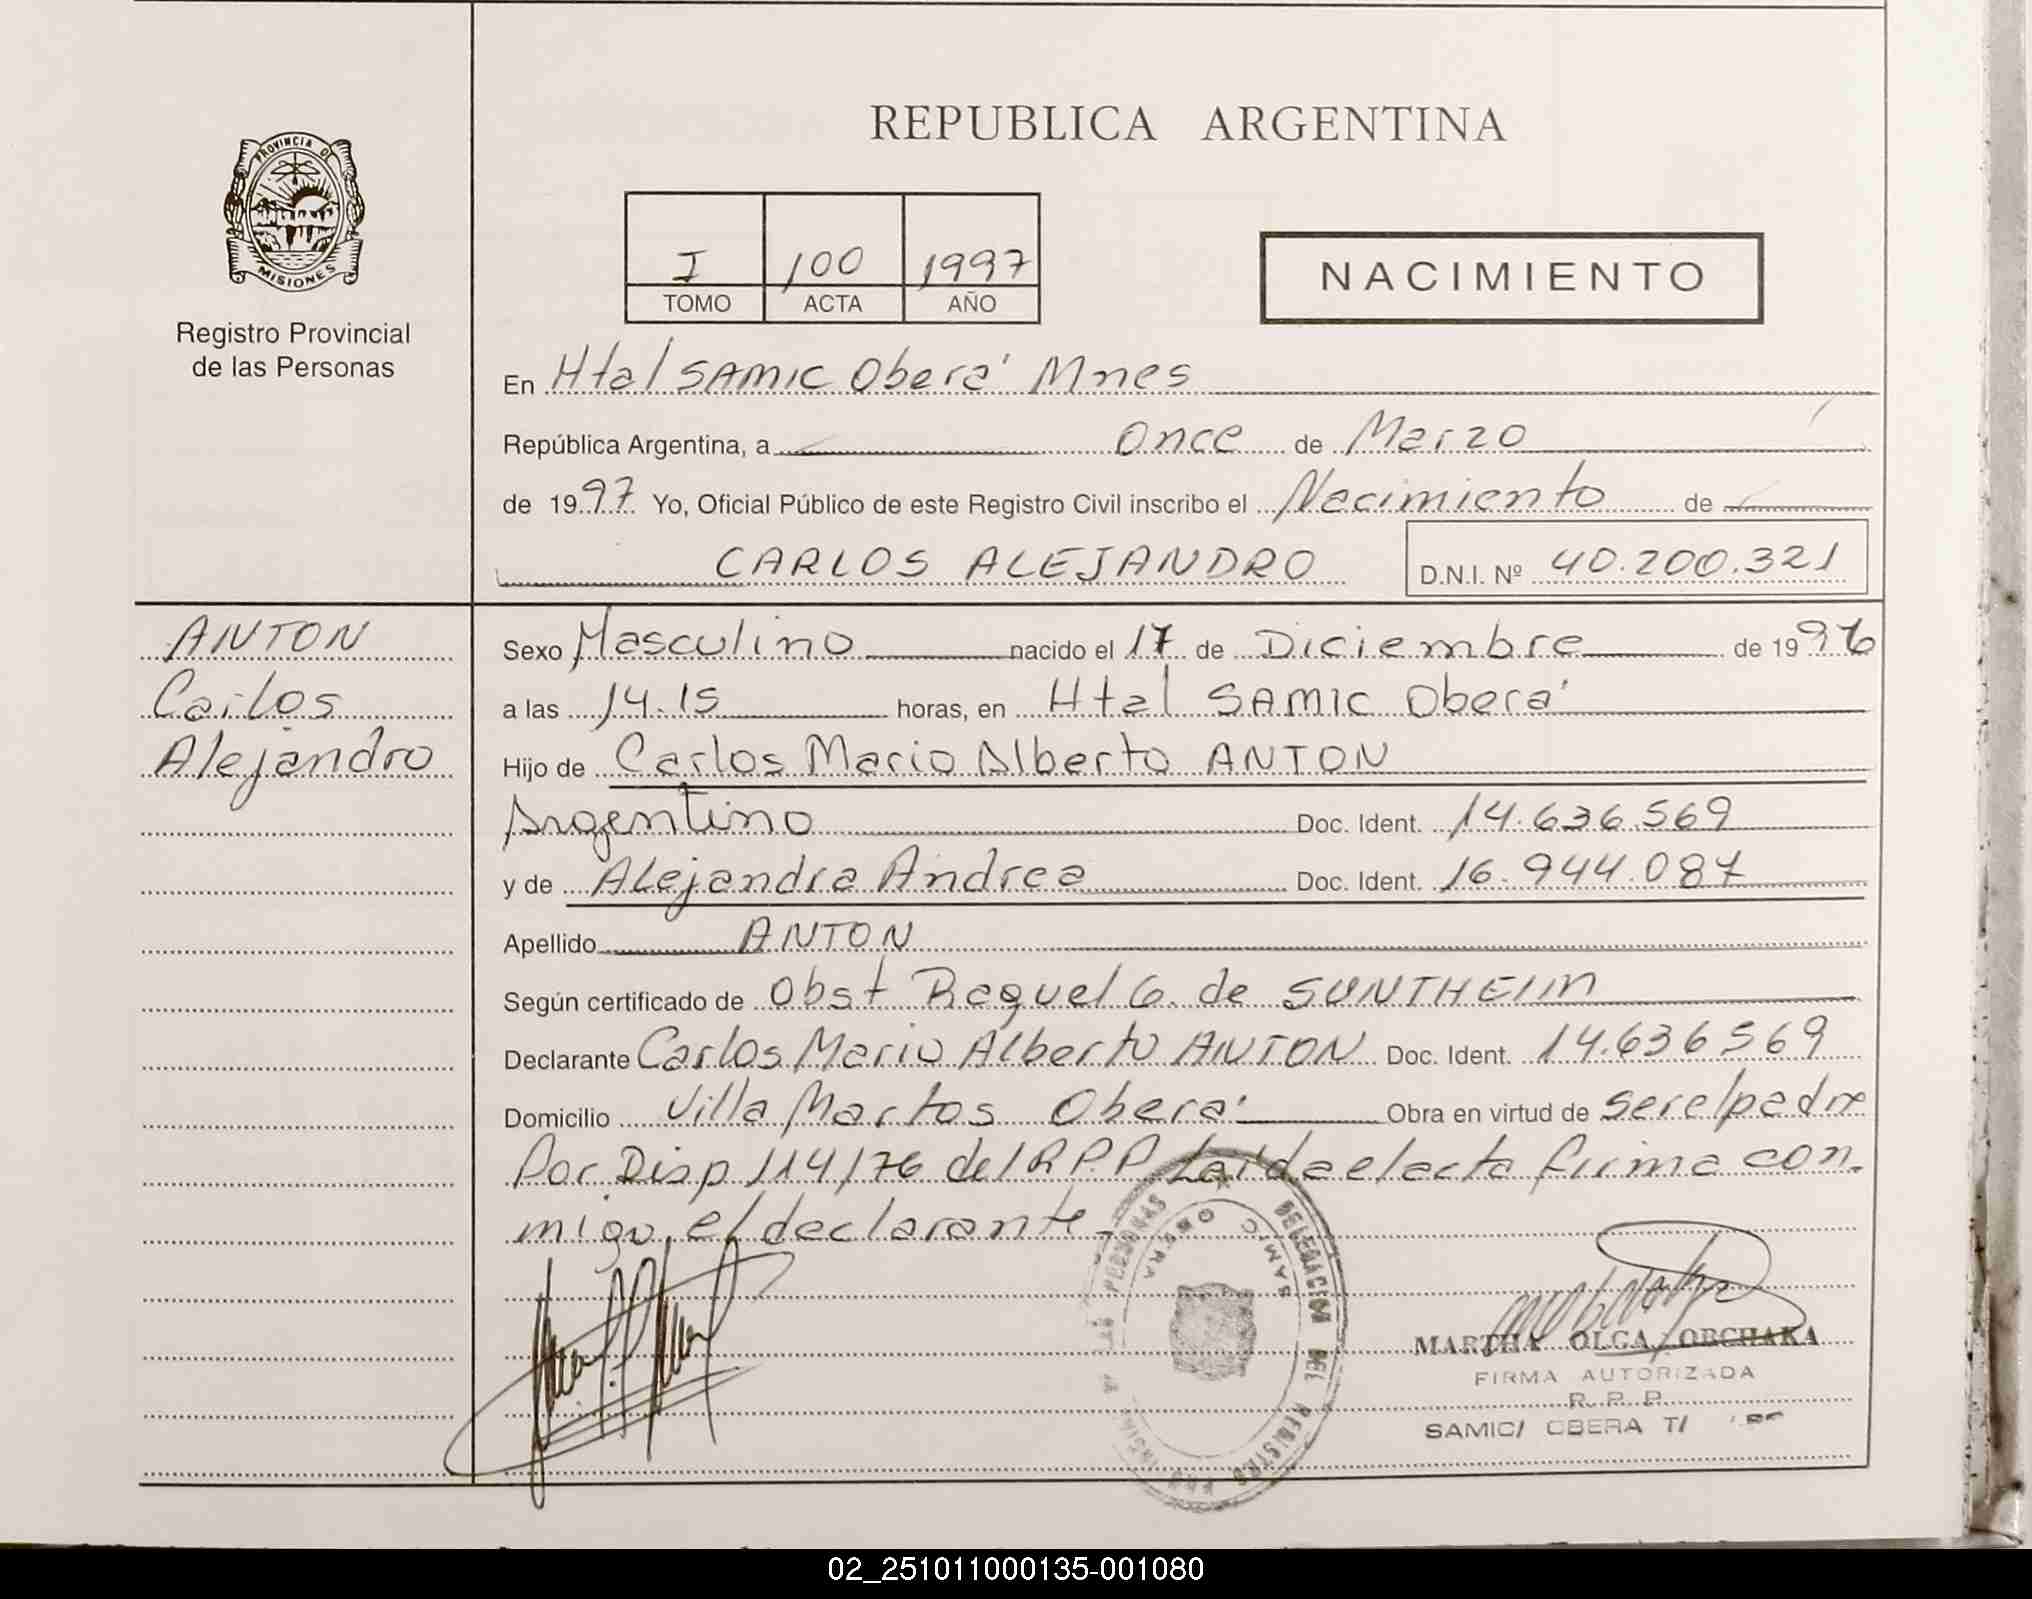 REPUBLICA ARGENTINA
PROVINCIA DE
MISIONES
Registro Provincial
de las Personas
I 100 1997
TOMO ACTA AÑO
NACIMIENTO
En Htal SAMIC Oberá Mnes
República Argentina, a Once de Marzo
de 1997 Yo, Oficial Público de este Registro Civil inscribo el Nacimiento de
CARLOS ALEJANDRO D.N.I. Nº 40.200.321
ANTON
Carlos
Alejandro
Sexo Masculino nacido el 17 de Diciembre de 1996
a las 14.15 horas, en Htal SAMIC Oberá
Hijo de Carlos Mario Alberto ANTON
Argentino Doc. Ident. 14.636.569
y de Alejandra Andrea Doc. Ident. 16.944.087
Apellido ANTON
Según certificado de Obst Raquel G. de SUNTHEIM
Declarante Carlos Mario Alberto ANTON Doc. Ident. 14.636569
Domicilio Villa Martos Oberá Obra en virtud de ser el padre
Por Disp 114/76 del R.P.P Leída el acta firma con.
migo el declarante.
DELEGACION DEL REGISTRO
PERSONAS
SAMIC OBERA
MARTHA OLGA OBCHAKA
FIRMA AUTORIZADA
R. P. P.
SAMIC/ OBERA T/
02_251011000135-001080